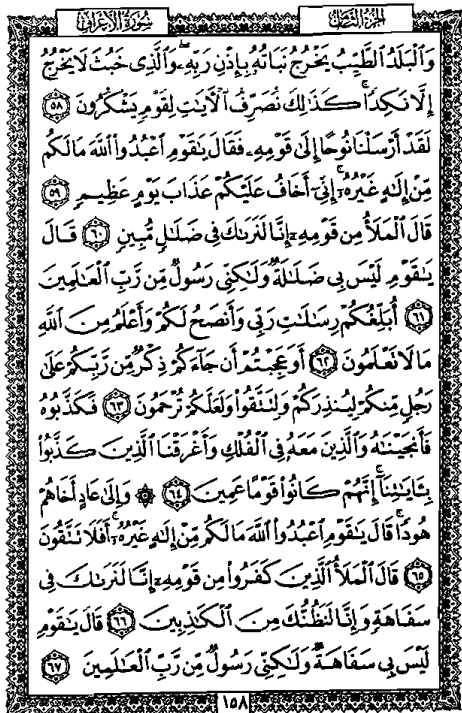 سُورَةُ الأَعْرَافِ
الجُزْءُ الثَّامِنُ
وَالْبَلَدُ الطَّيِّبُ يَخْرُجُ نَبَاتُهُ بِإِذْنِ رَبِّهِ وَالَّذِي خَبُثَ لَا يَخْرُجُ
إِلَّا نَكِدًا كَذَٰلِكَ نُصَرِّفُ الْآيَاتِ لِقَوْمٍ يَشْكُرُونَ ٥٨
لَقَدْ أَرْسَلْنَا نُوحًا إِلَىٰ قَوْمِهِ فَقَالَ يَٰقَوْمِ اعْبُدُوا اللَّهَ مَا لَكُم
مِّنْ إِلَٰهٍ غَيْرُهُ إِنِّي أَخَافُ عَلَيْكُمْ عَذَابَ يَوْمٍ عَظِيمٍ ٥٩
قَالَ الْمَلَأُ مِن قَوْمِهِ إِنَّا لَنَرَىٰكَ فِي ضَلَٰلٍ مُّبِينٍ ٦٠ قَالَ
يَٰقَوْمِ لَيْسَ بِي ضَلَٰلَةٌ وَلَٰكِنِّي رَسُولٌ مِّن رَّبِّ الْعَٰلَمِينَ
٦١ أُبَلِّغُكُمْ رِسَٰلَٰتِ رَبِّي وَأَنصَحُ لَكُمْ وَأَعْلَمُ مِنَ اللَّهِ
مَا لَا تَعْلَمُونَ ٦٢ أَوَعَجِبْتُمْ أَن جَاءَكُمْ ذِكْرٌ مِّن رَّبِّكُمْ عَلَىٰ
رَجُلٍ مِّنكُمْ لِيُنذِرَكُمْ وَلِتَتَّقُوا وَلَعَلَّكُمْ تُرْحَمُونَ ٦٣ فَكَذَّبُوهُ
فَأَنجَيْنَٰهُ وَالَّذِينَ مَعَهُ فِي الْفُلْكِ وَأَغْرَقْنَا الَّذِينَ كَذَّبُوا
بِـَٔايَٰتِنَا إِنَّهُمْ كَانُوا قَوْمًا عَمِينَ ٦٤ ۞ وَإِلَىٰ عَادٍ أَخَاهُمْ
هُودًا قَالَ يَٰقَوْمِ اعْبُدُوا اللَّهَ مَا لَكُم مِّنْ إِلَٰهٍ غَيْرُهُ أَفَلَا تَتَّقُونَ
٦٥ قَالَ الْمَلَأُ الَّذِينَ كَفَرُوا مِن قَوْمِهِ إِنَّا لَنَرَىٰكَ فِي
سَفَاهَةٍ وَإِنَّا لَنَظُنُّكَ مِنَ الْكَٰذِبِينَ ٦٦ قَالَ يَٰقَوْمِ
لَيْسَ بِي سَفَاهَةٌ وَلَٰكِنِّي رَسُولٌ مِّن رَّبِّ الْعَٰلَمِينَ ٦٧
١٥٨